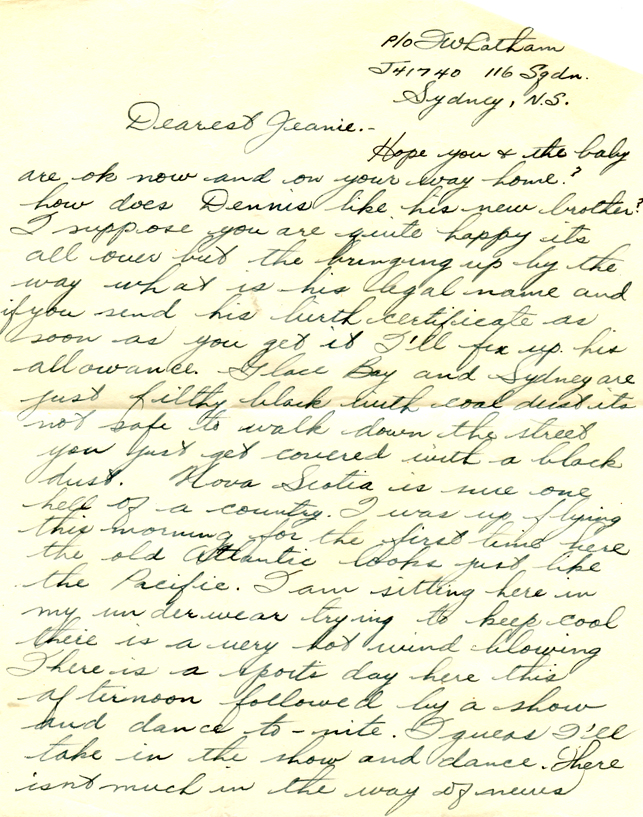 P/O J Whatham
J41740 116 Sqdn.
Sydney, N.S.
Dearest Jeanie.-
Hope you & the baby
are ok now and on your way home?
how does Dennis like his new brother?
I suppose you are quite happy its
all over but the bringing up by the
way what is his legal name and
if you send his birth certificate as
soon as you get it I'll fix up his
allowance. Glace Bay and Sydney are
just filthy black with coal dust its
not safe to walk down the street
you just get covered with a black
dust. Nova Scotia is sure one
hell of a country. I was up flying
this morning for the first time here
the old Atlantic looks just like
the Pacific. I am sitting here in
my underwear trying to keep cool
there is a very hot wind blowing
There is a sports day here this
afternoon followed by a show
and dance to-nite. I guess I'll
take in the show and dance. There
isnt much in the way of news